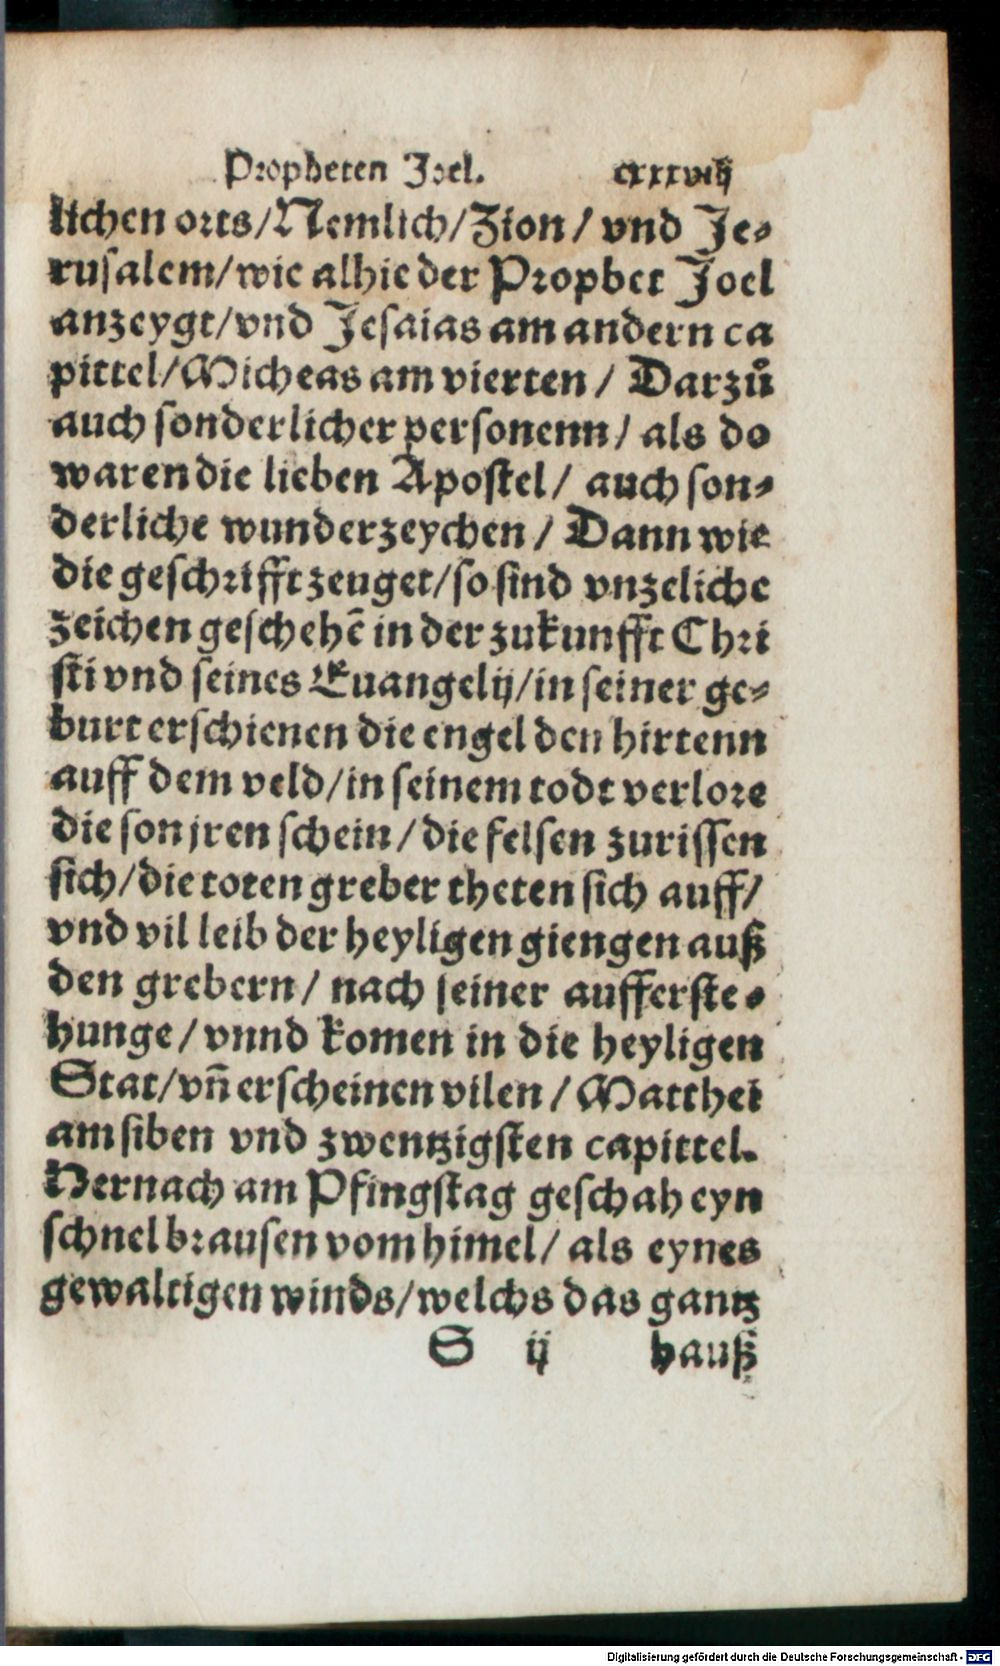 Propheten Joel. cxxxviij
lichen orts/Nemlich/Zion/ vnd Je-
rusalem/wie alhie der Prophet Joel
anzeygt/vnd Jesaias am andern ca
pittel/Micheas am vierten/ Darzů
auch sonderlicher personenn/ als do
waren die lieben Apostel/ auch son-
derliche wunderzeychen/ Dann wie
die geschrifft zeuget/so sind vnzeliche
zeichen geschehē in der zukunfft Chri
sti vnd seines Euangelij/in seiner ge-
burt erschienen die engel den hirtenn
auff dem veld/in seinem todt verlore
die son jren schein/die felsen zurissen
sich/die toten greber theten sich auff/
vnd vil leib der heyligen giengen auß
den grebern/ nach seiner aufferste-
hunge/ vnnd komen in die heyligen
Stat/vñ erscheinen vilen/ Matthei
am siben vnd zwentzigsten capittel.
Hernach am Pfingstag geschah eyn
schnel brausen vom himel/ als eynes
gewaltigen winds/welchs das gantz
S ij hauß
Digitalisierung gefördert durch die Deutsche Forschungsgemeinschaft - DFG